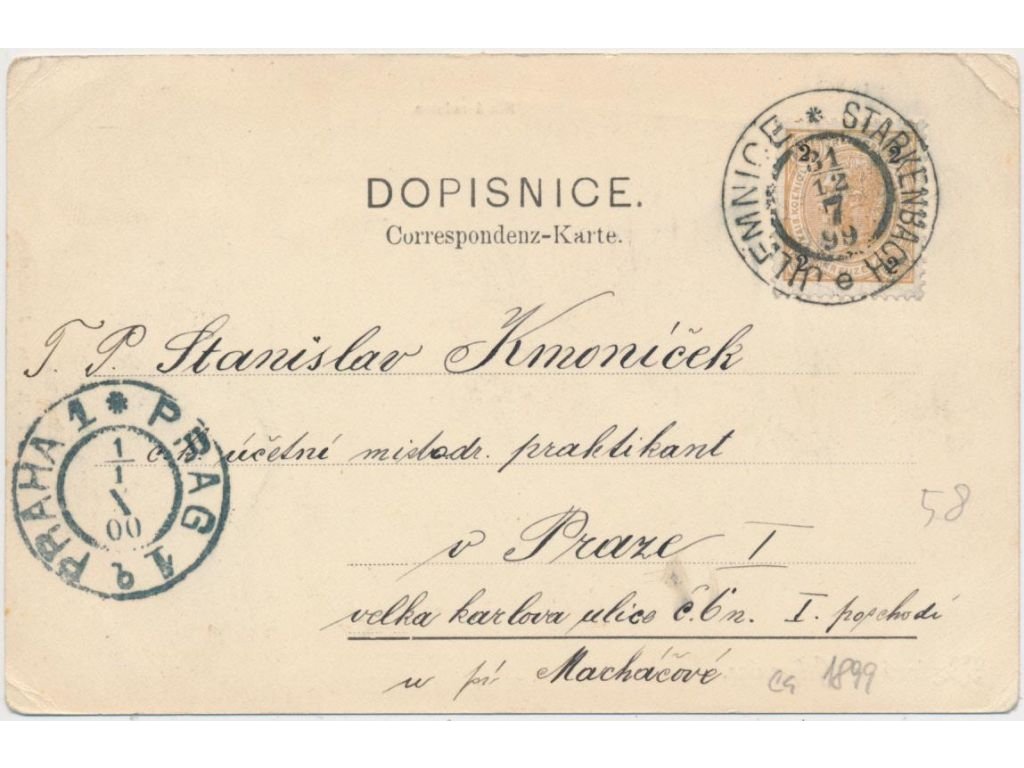 DOPISNICE.
Correspondenz-Karte.
STARKENBACH * JILEMNICE e
31
12
7
99
2 2
2 2
T. P. Stanislav Kmoníček
c.k. účetní místodr. praktikant
v Praze I
velka karlova ulice č. 6 n. I. poschodí
u pí Macháčové
PRAHA 1 * PRAG 1
1
1
00
58
ca 1899